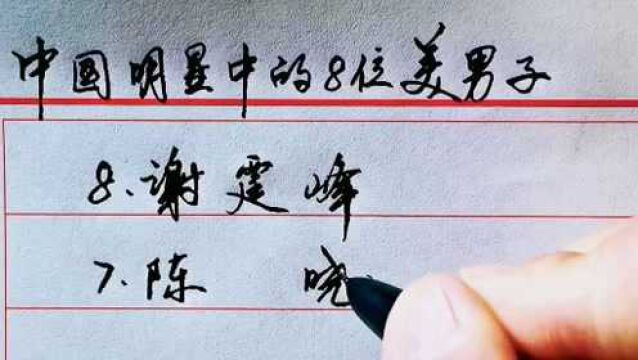 中国明星中的8位美男子
8.谢霆峰
7.陈 晓